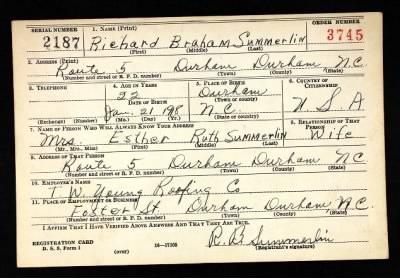 SERIAL NUMBER 1. NAME (Print) ORDER NUMBER
2187 Richard Braham Summerlin 3745
(First) (Middle) (Last)
2. ADDRESS (Print)
Route 5 Durham Durham N.C.
(Number and street or R. F. D. number) (Town) (County) (State)
3. TELEPHONE 4. AGE IN YEARS 5. PLACE OF BIRTH 6. COUNTRY OF CITIZENSHIP
22 Durham
DATE OF BIRTH (Town or county)
Jan. 21 1918 N.C. U.S.A
(Exchange) (Number) (Mo.) (Day) (Yr.) (State or country)
7. NAME OF PERSON WHO WILL ALWAYS KNOW YOUR ADDRESS 8. RELATIONSHIP OF THAT PERSON
Mrs. Esther Ruth Summerlin Wife
(Mr., Mrs., Miss) (First) (Middle) (Last)
9. ADDRESS OF THAT PERSON
Route 5 Durham Durham NC
(Number and street or R. F. D. number) (Town) (County) (State)
10. EMPLOYER'S NAME
T. W. Young Roofing Co
11. PLACE OF EMPLOYMENT OR BUSINESS
Foster St Durham Durham, N.C.
(Number and street or R. F. D. number) (Town) (County) (State)
I AFFIRM THAT I HAVE VERIFIED ABOVE ANSWERS AND THAT THEY ARE TRUE.
REGISTRATION CARD R. B. Summerlin
D. S. S. Form 1 (over) 16—17105 (Registrant's signature)